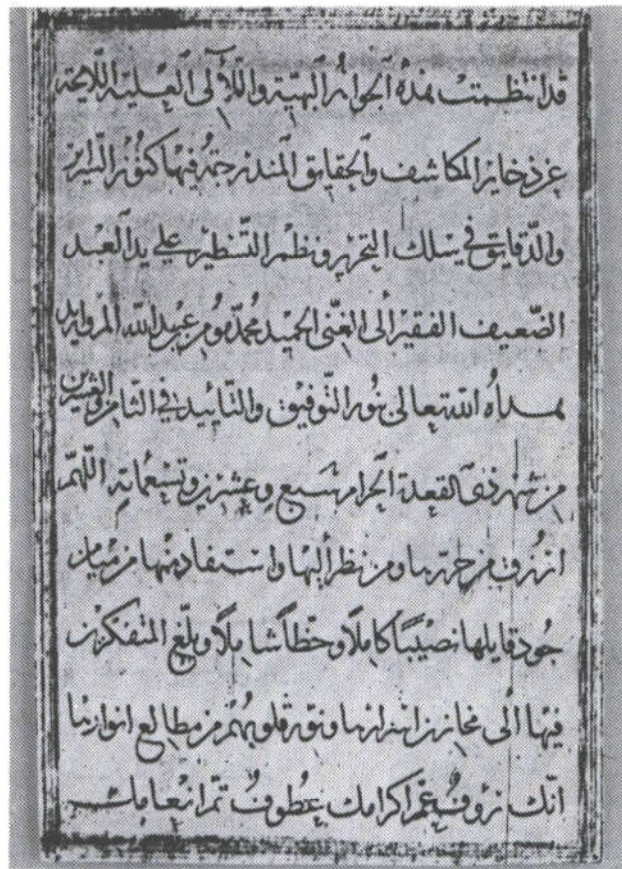 قد انتظمت هذه الجواهر البهية واللآلى العلية اللايحة
عن ذخاير المكاشف والحقايق المندرجة فيها كنوز السراير
والدقايق في سلك التحرير ونظم التسطير على يد العبد
الضعيف الفقير الى الغنى الحميد محمد مومن عبد الله المرواريد
هداه الله تعالى بنور التوفيق والتأييد فى الثامن والعشرين
من شهر ذى القعدة الحرام سبع وعشرين وتسعمائه اللهم
ارزق من حررها ومن نظر اليها واستفاد منها من ميامن
جود قايلها نصيبًا كاملًا وحظاً شاملًا وبلغ المتفكرين
فيها الى مخازن اسرارها ونور قلوبهم من مطالع انوارها
انك رؤوفٌ عم اكرامك عطوفٌ تم انعامك